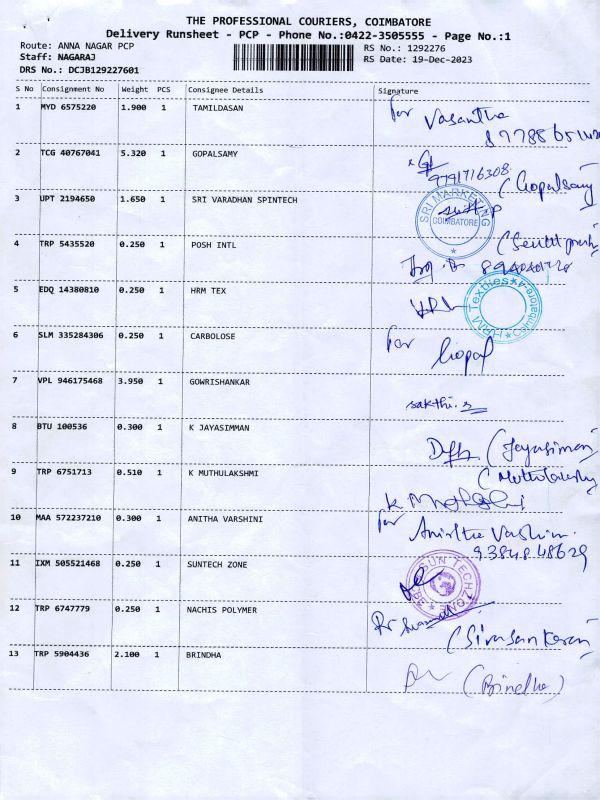 THE PROFESSIONAL COURIERS, COIMBATORE
Delivery Runsheet - PCP - Phone No.:0422-3505555 - Page No.:1
Route: ANNA NAGAR PCP RS No.: 1292276
Staff: NAGARAJ RS Date: 19-Dec-2023
DRS No.: DCJB129227601
S No Consignment No Weight PCS Consignee Details Signature
1 MYD 6575220 1.900 1 TAMILDASAN for Vasantha
2 TCG 40767041 5.320 1 GOPALSAMY 9791716308
(Gopalsamy)
3 UPT 2194650 1.650 1 SRI VARADHAN SPINTECH SRI MARKETING COIMBATORE
4 TRP 5435520 0.250 1 POSH INTL
5 EDQ 14380810 0.250 1 HRM TEX Textiles Coimbatore-4
6 SLM 335284306 0.250 1 CARBOLOSE for Gopal
7 VPL 946175468 3.950 1 GOWRISHANKAR sakthi.s
8 BTU 100536 0.300 1 K JAYASIMMAN (Jayasiman)
9 TRP 6751713 0.510 1 K MUTHULAKSHMI (Muthulakshmy)
10 MAA 572237210 0.300 1 ANITHA VARSHINI for Anitha Varshini
9384848629
11 IXM 505521468 0.250 1 SUNTECH ZONE SUN TECHZONE
12 TRP 6747779 0.250 1 NACHIS POLYMER (Sivasankaran)
13 TRP 5904436 2.100 1 BRINDHA (Brindha)